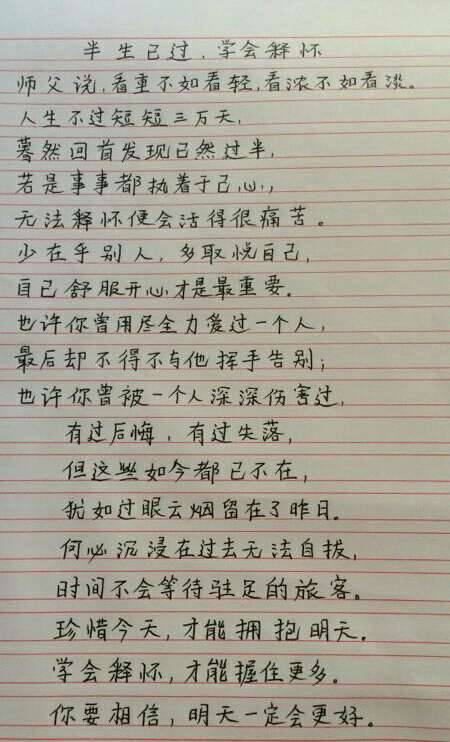 半生已过，学会释怀
师父说，看重不如看轻，看浓不如看淡。
人生不过短短三万天，
蓦然回首发现已然过半，
若是事事都执着于己心，
无法释怀便会活得很痛苦。
少在乎别人，多取悦自己，
自己舒服开心才是最重要。
也许你曾用尽全力爱过一个人，
最后却不得不与他挥手告别；
也许你曾被一个人深深伤害过，
有过后悔，有过失落，
但这些如今都已不在，
犹如过眼云烟留在了昨日。
何必沉浸在过去无法自拔，
时间不会等待驻足的旅客。
珍惜今天，才能拥抱明天。
学会释怀，才能握住更多。
你要相信，明天一定会更好。